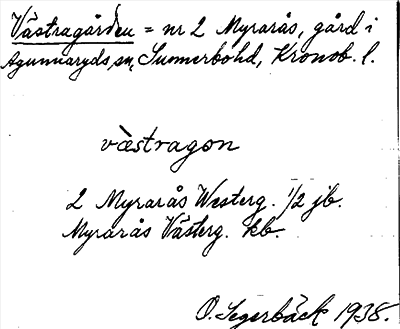 Västragården = nr 2 Myrarås, gård i
Agunnaryds sn, Sunnerbohd, Kronob. l.
västragon
2 Myrarås Westerg. 1/2 jb.
Myrarås Västerg. kb.
O. Segerbäck 1938.